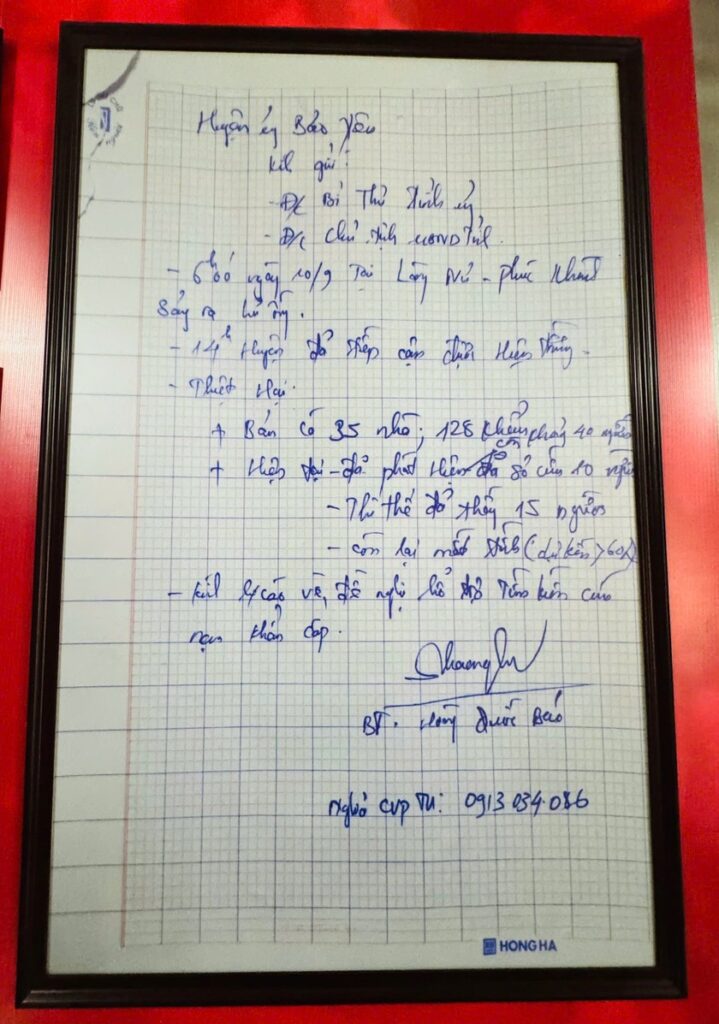 Huyện ủy Bảo Yên
Kính gửi:
- Đ/c Bí Thư tỉnh ủy
- Đ/c Chủ tịch UBND Tỉnh.
- 6h00 ngày 10/9 Tại Làng Nủ - Phúc Khánh
Sảy ra lũ ống.
- 14h Huyện đã tiếp cận được Hiện trường.
- Thiệt Hại.
+ Bản có 35 nhà; 128 khẩu
+ Hiện tại - đã phát hiện 10 người
- Thi thể đã thấy 15 người
- còn lại mất tích (dự kiến > 60
- Kính b/cáo về, đề nghị hỗ trợ Tìm kiếm cứu
nạn khẩn cấp.
BT. Hoàng Quốc Bảo
CVP TU: 0913 034.086
HONG HA